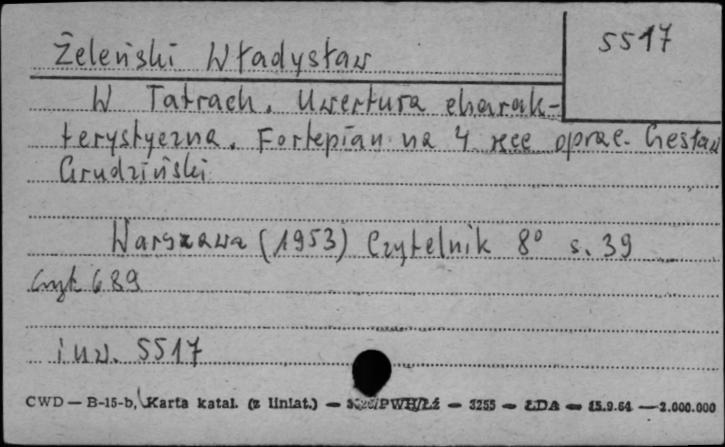 Żeleński Władysław
5517
W Tatrach. Uwertura charak-
terystyczna. Fortepian na 4 ręce oprac. Czesław
Grudziński
Warszawa (1953) Czytelnik 8° s. 39
Czyt 689
inw. 5517
CWD — B-15-b, Karta katal. (z liniat.) — PWH/Łź — 3255 — ŁDA — 15.9.64 — 2.000.000